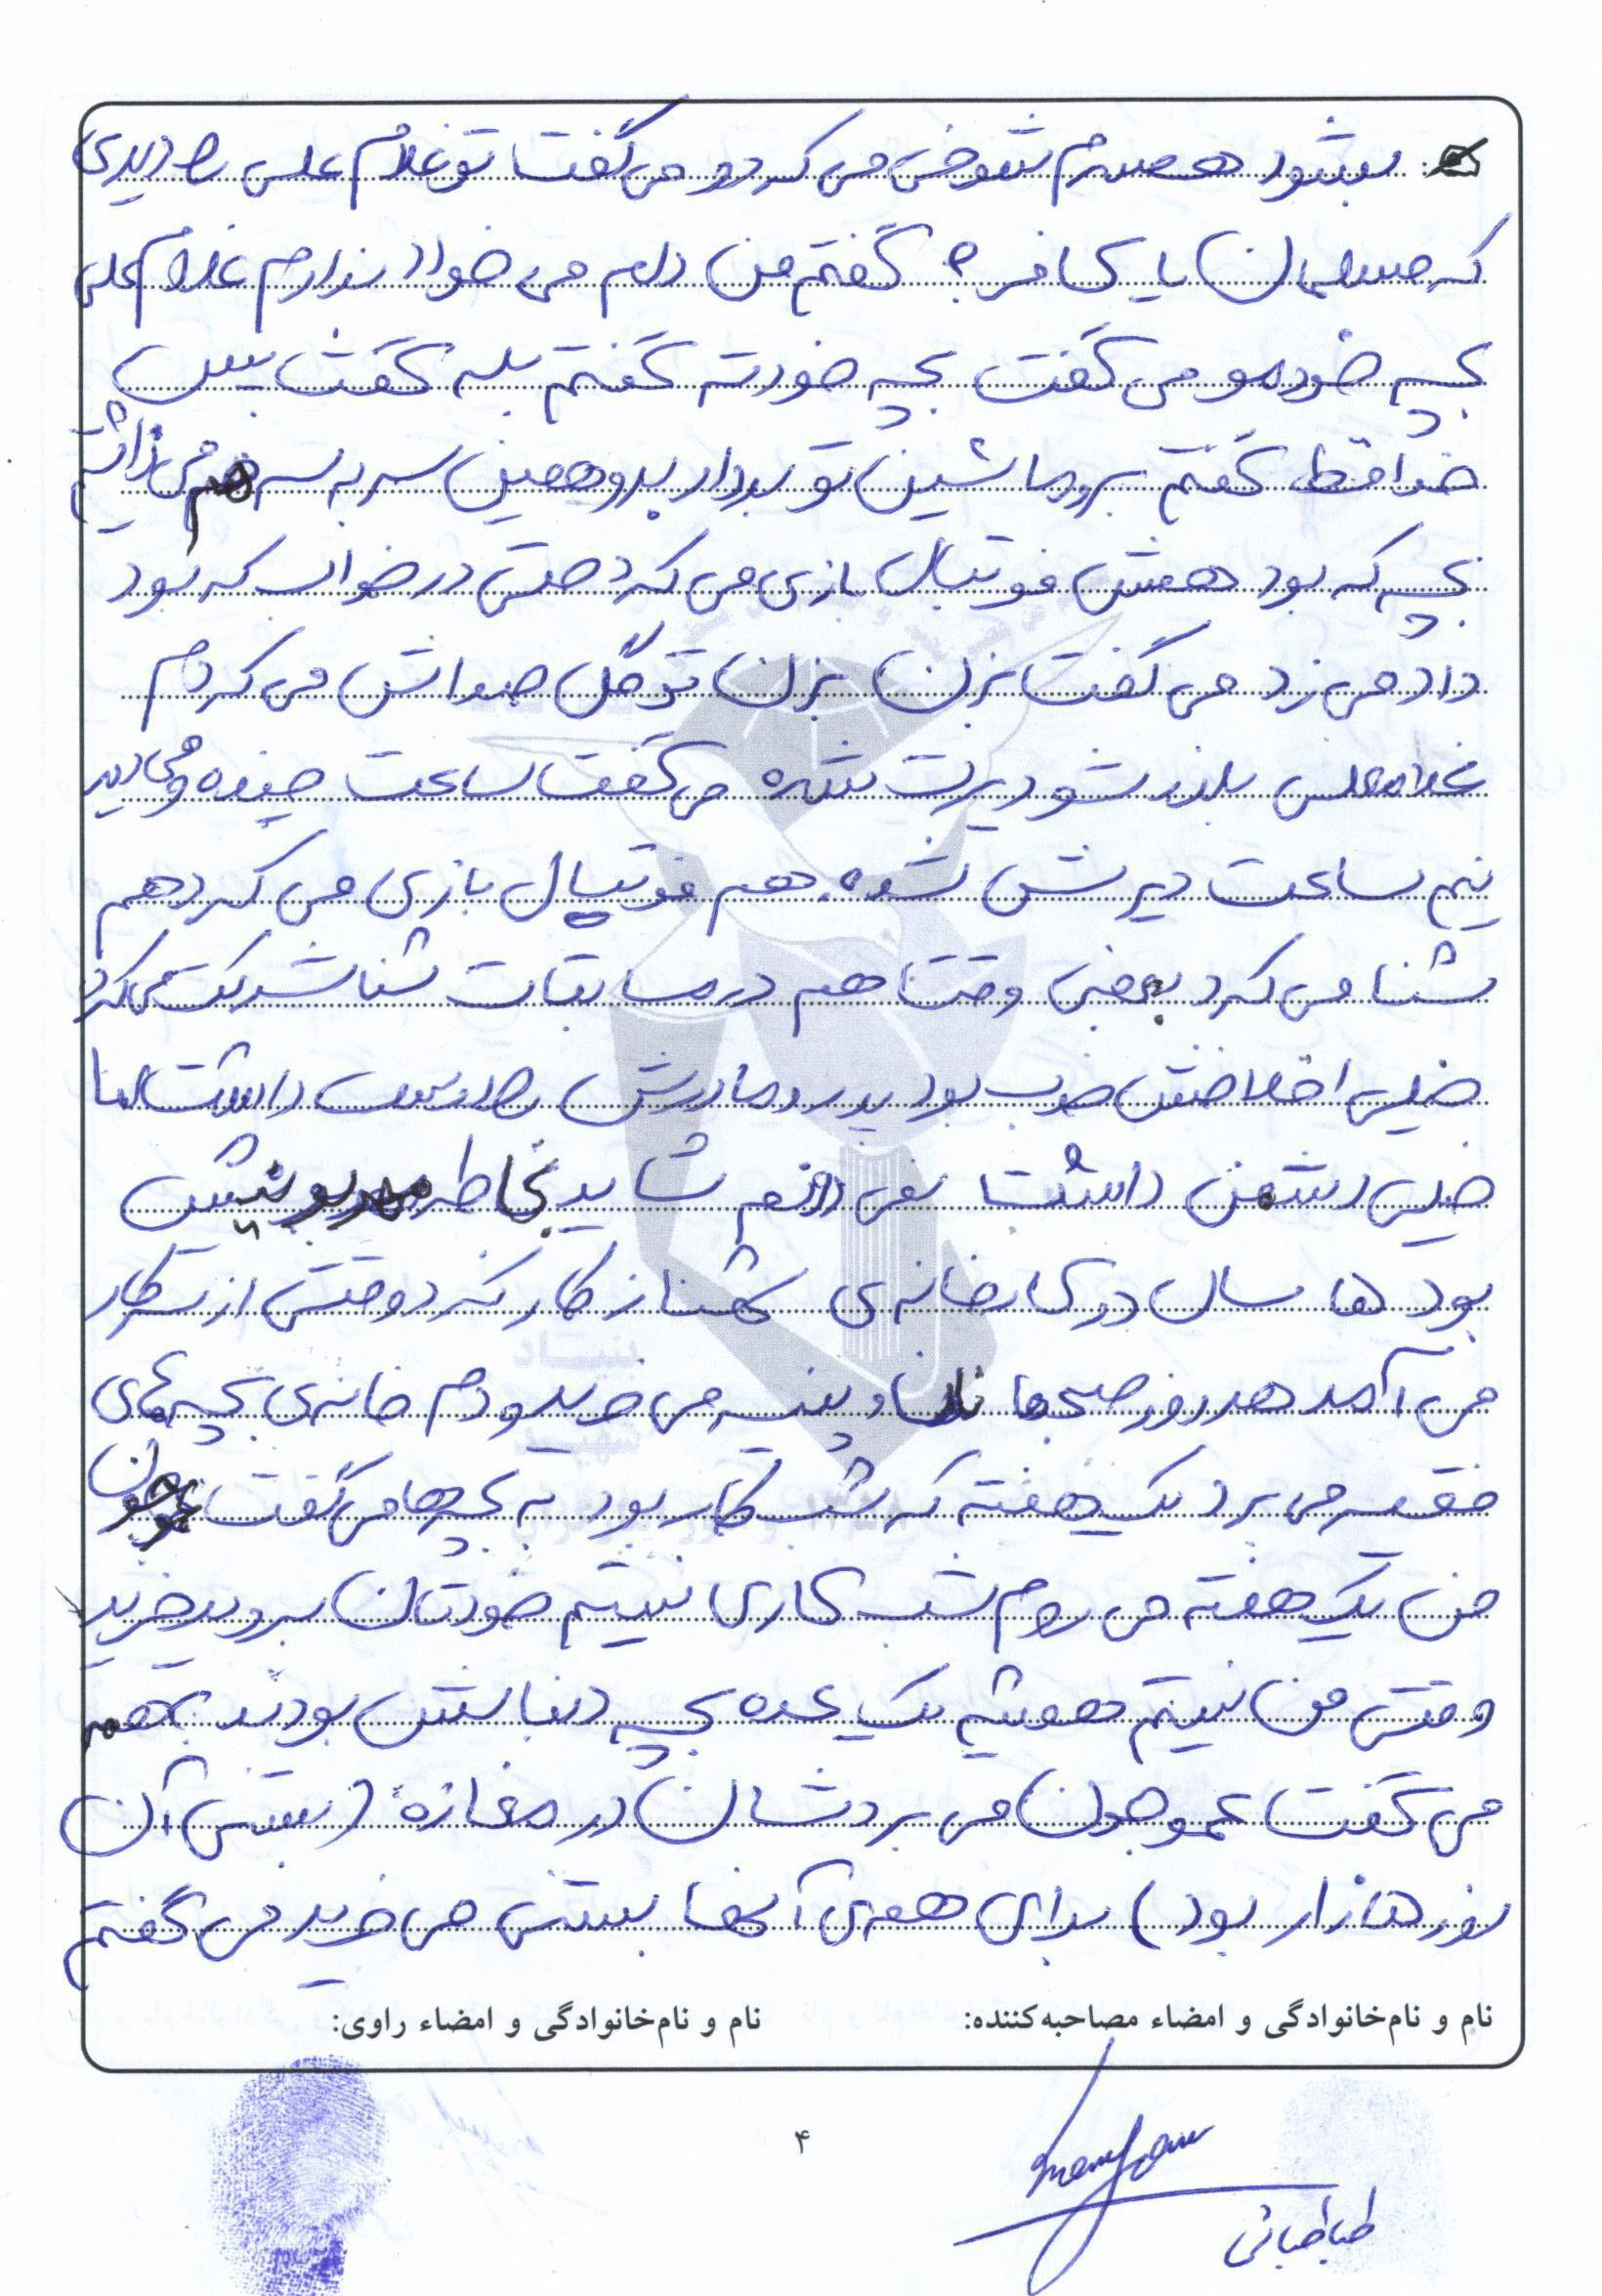 بشود همسرم شوخی می کرد و می گفت تو غلام علی را دیدی
که مسلمان یا کافر؟ گفتم من دلم می خواد ندارم غلام علی
بچه خودمو می گفت بچه خودته گفتم بله گفت پس
خداحافظ گفتم برو ماشین تو بردار برو همین سر به سر هم می ذاشتیم
بچه که بود همش فوتبال بازی می کرد حتی در خواب که بود
داد می زد می گفت بزن بزن تو گل صداش می کردم
غلامعلی بلند شو دیرت شده می گفت ساعت چنده و می دید
نیم ساعت دیرش شده. هم فوتبال بازی می کرد هم
شنا می کرد بعضی وقتا هم در مسابقات شنا شرکت می کرد
خیلی اخلاقش خوب بود پدر و مادرش را دوست داشت اما
خیلی دشمن داشت نمی دانم شاید بخاطر مهربونیش
بود ها سال در کارخانه ی شهناز کار کرد وقتی از سر کار
می آمد هر روز صبح ها نان و پنیر می خرید و دم خانه ی بچه های
فقیر می برد یک هفته که شب کار بود به بچه ها می گفت عمو جون
من یک هفته می روم شب کاری نیستم خودتان بروید خرید
وقتی من نیستم همیشه یک عده بچه دنبالش بودند بهم
می گفت عمو جون می بردشان در مغازه (بستنی آن
روز هازار بود) برای همه ی آنها بستنی می خرید می گفتم
نام و نام‌خانوادگی و امضاء مصاحبه‌کننده: نام و نام‌خانوادگی و امضاء راوی:
۴
طباطبائی
بنیاد
شهید